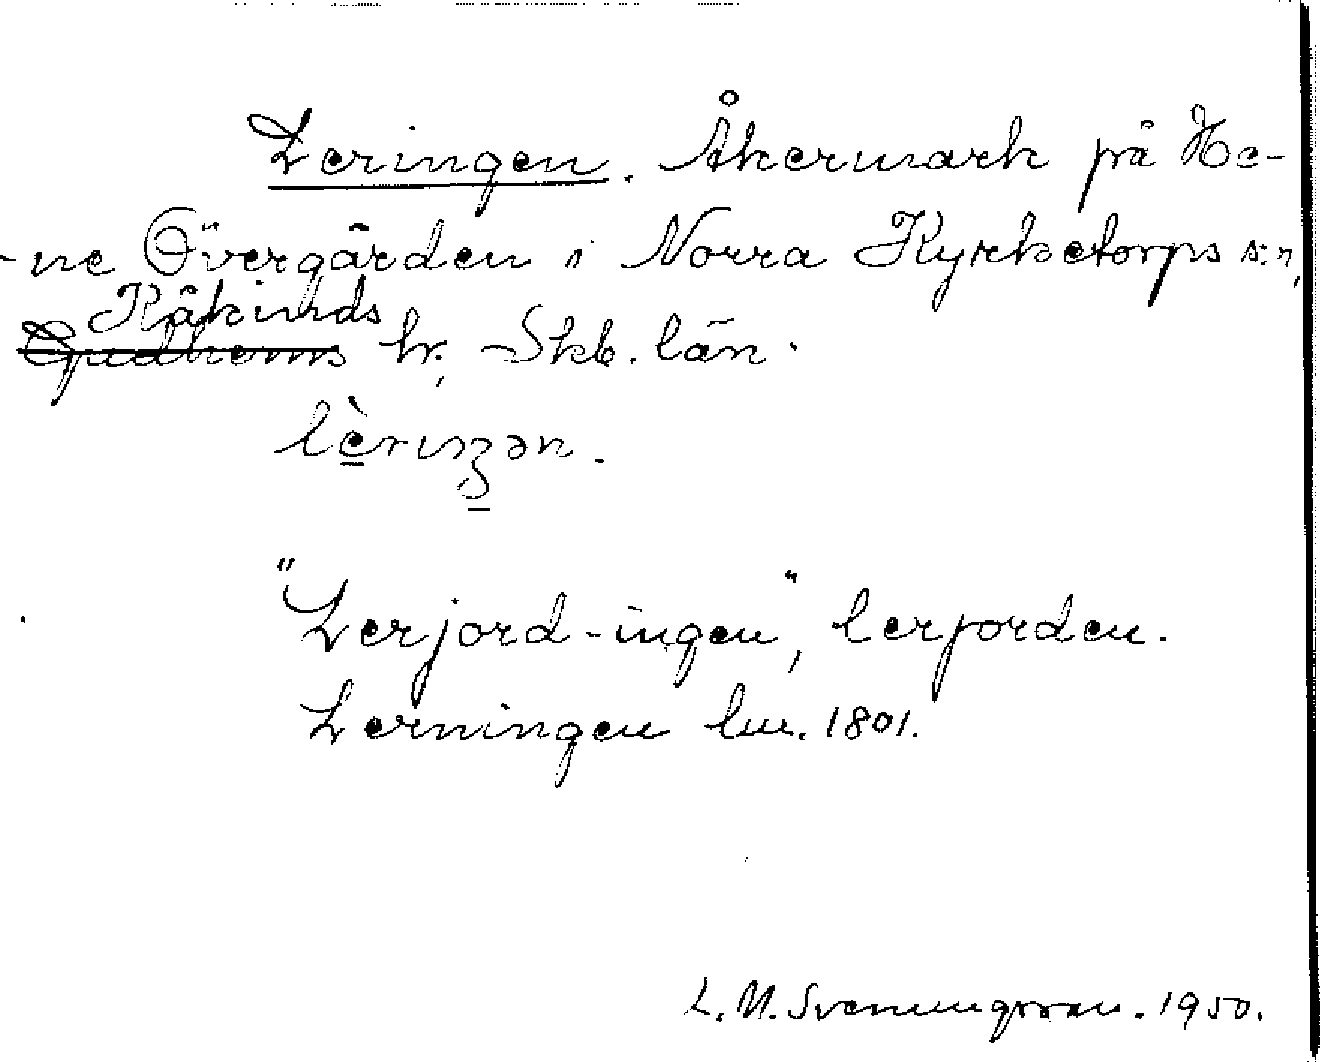 Leringen. Åkermark på He-
-ne Övergården i Norra Kyrketorps s:n,
Kåkinds
Gudhems hr, Skb. län.
lèriŋən.
"Lerjord-ingen", lerjorden.
Lerningen lm. 1801.
L. M. Svenungsson. 1950.